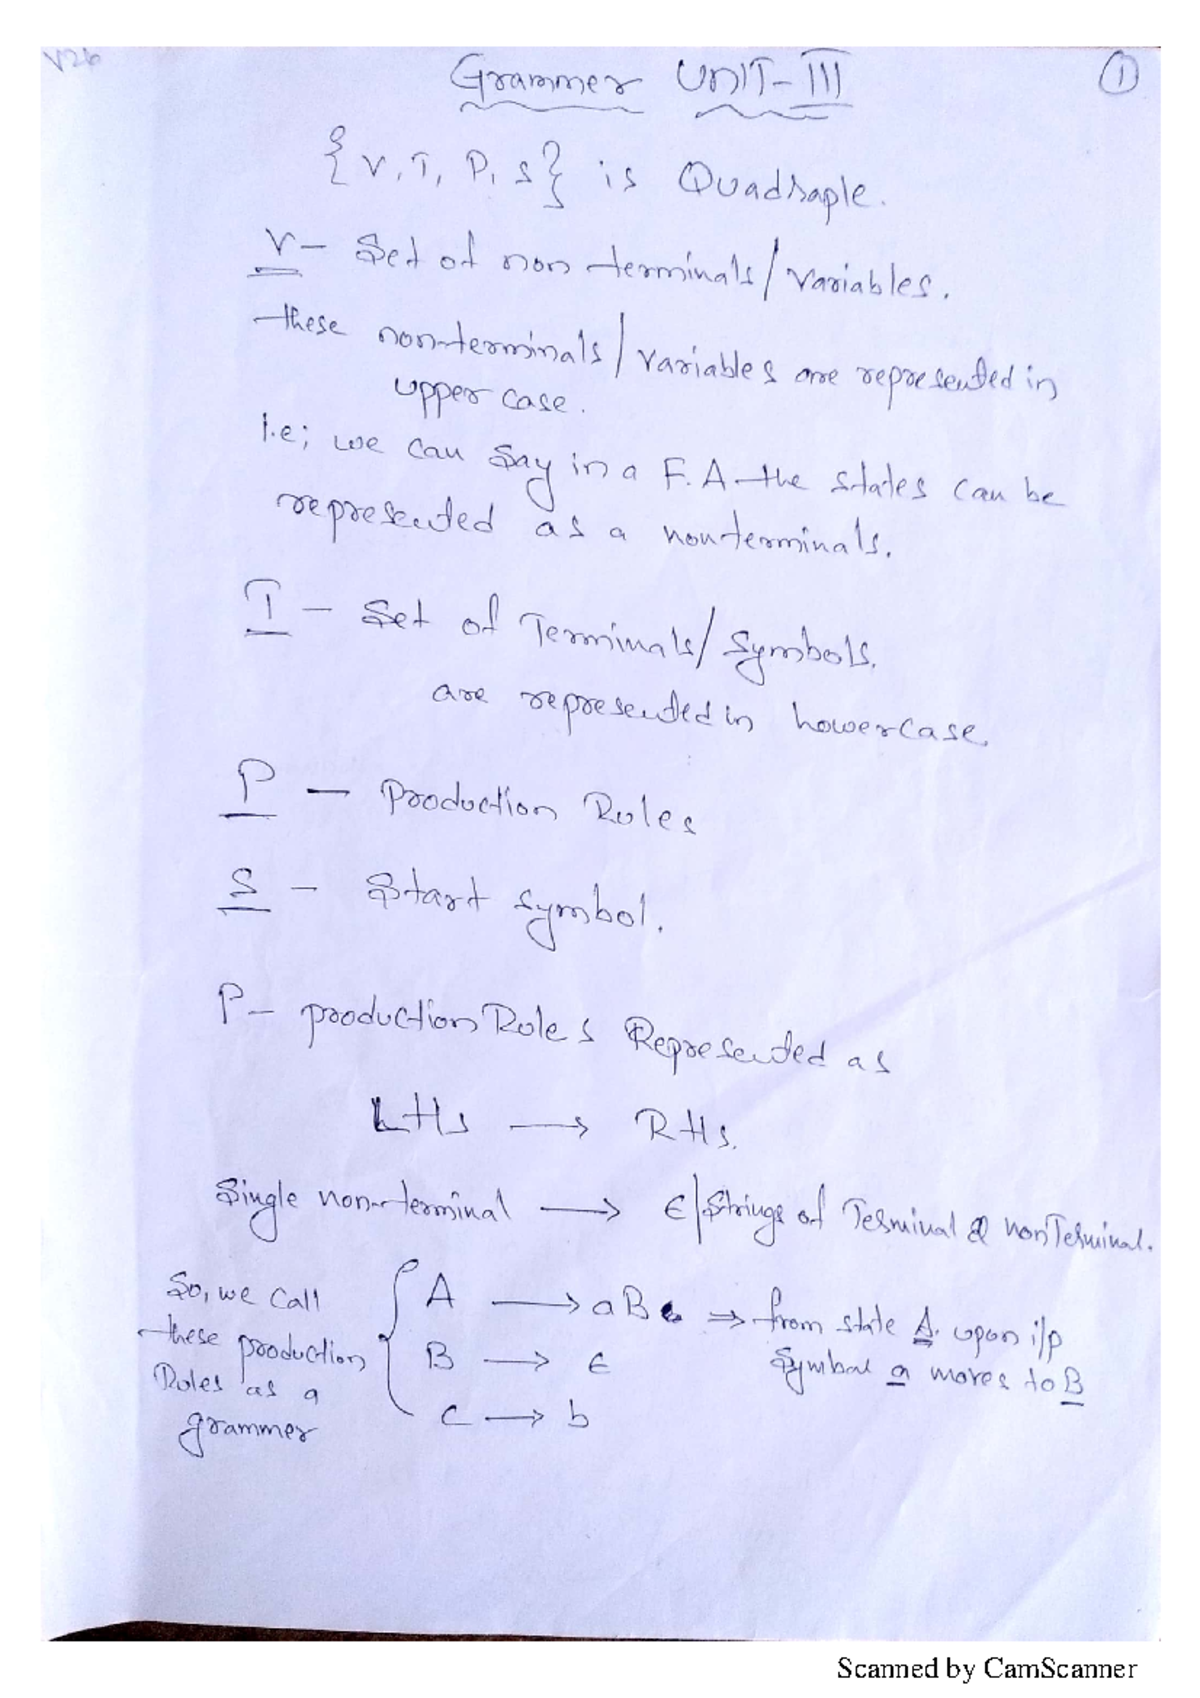 V26
Grammer UNIT-III
①
{V, T, P, S} is Quadraple.
V - Set of non terminals/variables.
these non-terminals/variables are represented in
upper case.
i.e; we can say in a F.A the states can be
represented as a nonterminals.
T - Set of Terminals/Symbols.
are represented in Lowercase
P - Production Rules
S - Start symbol.
P - production Rules Represented as
LHS → RHS.
Single non-terminal → ϵ/Strings of Terminal & nonTerminal.
So, we call
these production
Rules as a
grammer
A → aB ⇒ from state A upon i/p
Symbol a moves to B
B → ϵ
C → b
Scanned by CamScanner